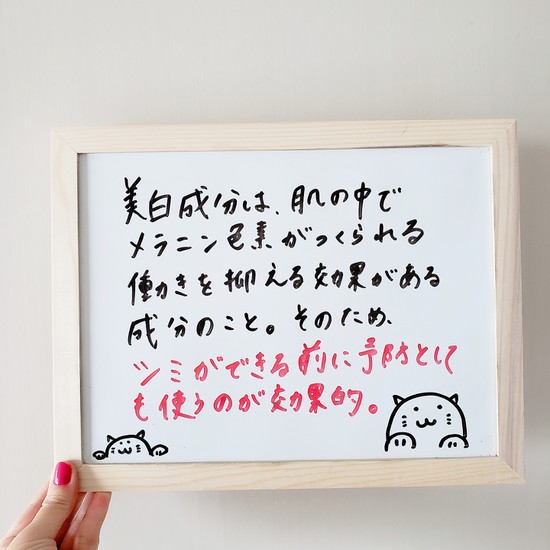 美白成分は、肌の中で
メラニン色素がつくられる
働きを抑える効果がある
成分のこと。そのため、
シミができる前に予防として
も使うのが効果的。